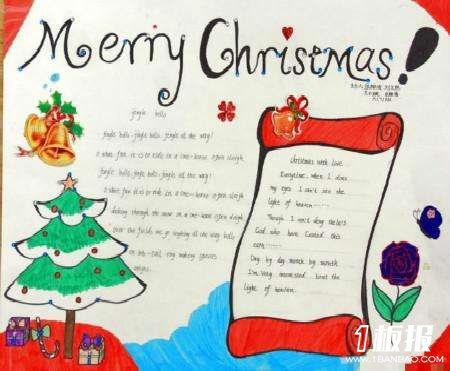 Merry Christmas!
Jingle bells
Jingle bells, jingle bells, jingle all the way!
O what fun it is to ride in a one-horse open sleigh
Jingle bells, jingle bells, jingle all the way!
O what fun it is to ride in a one-horse open sleigh
dashing through the snow in a one-horse open sleigh
over the fields we go laughing all the way bells
on bob-tail ring making spirits
Christmas with love
Everytime when I close
my eyes I can't see the
light of heaven
Though I not
God who have Created this
Day by day month by month
I'm very interested
light of heaven
1板报
WWW.1BANBAO.COM